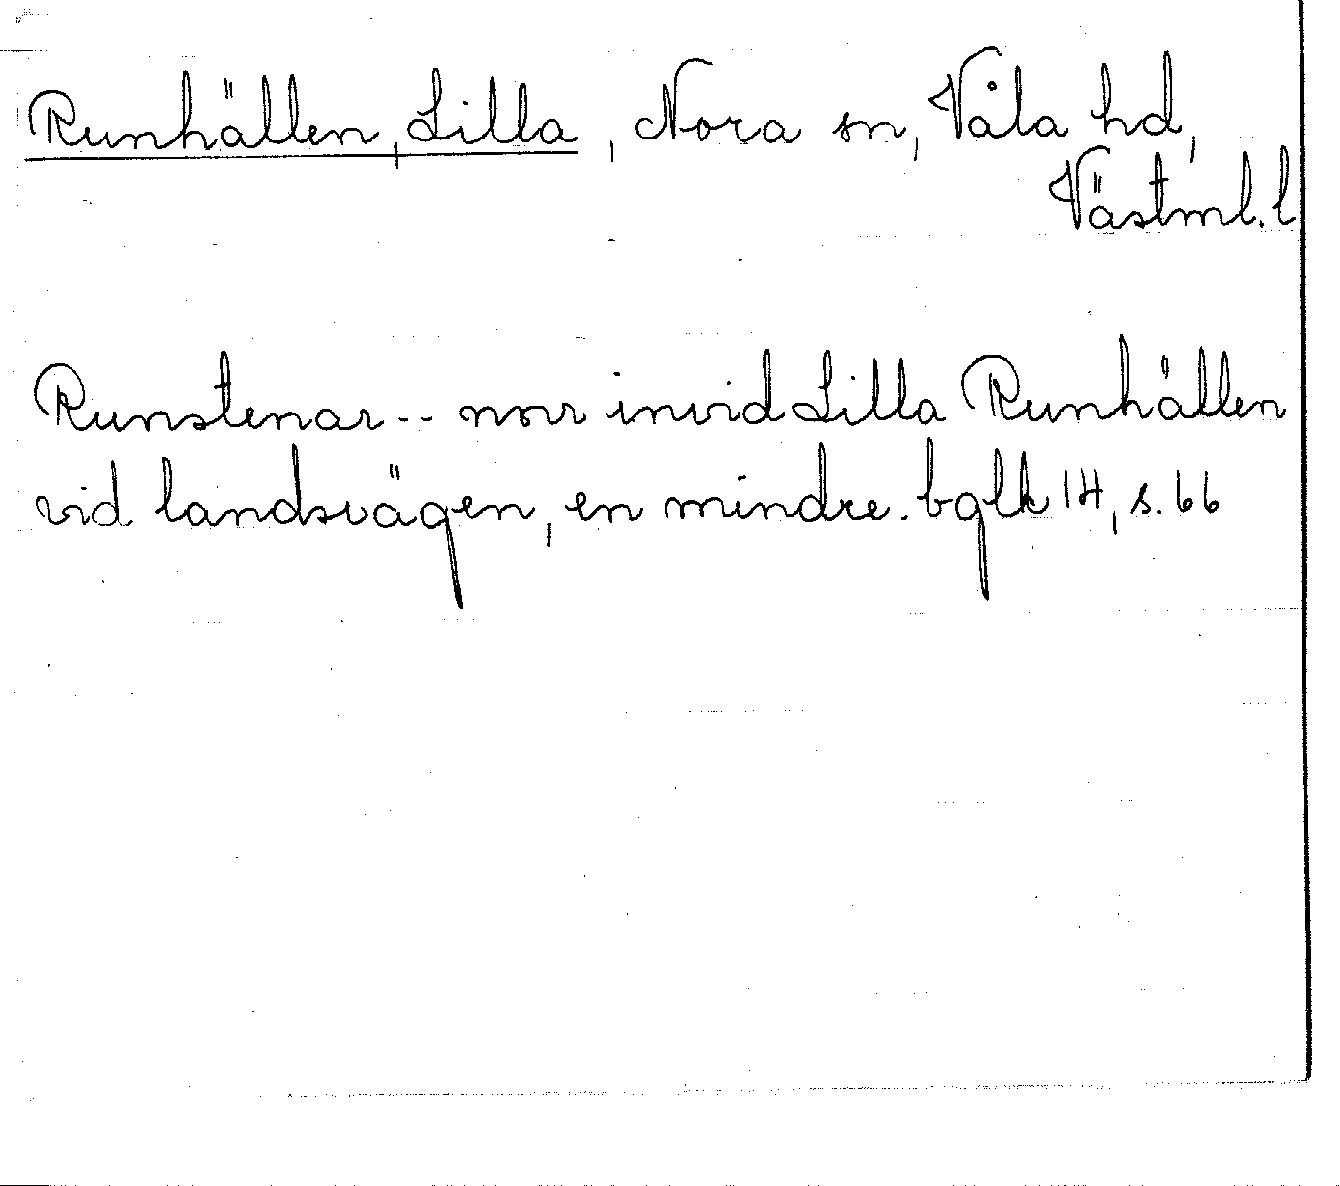 Runhällen, Lilla, Nora sn, Våla hd,
Västml. l
Runstenar -- norr invid Lilla Runhällen
vid landsvägen, en mindre. bglk 14, s. 66